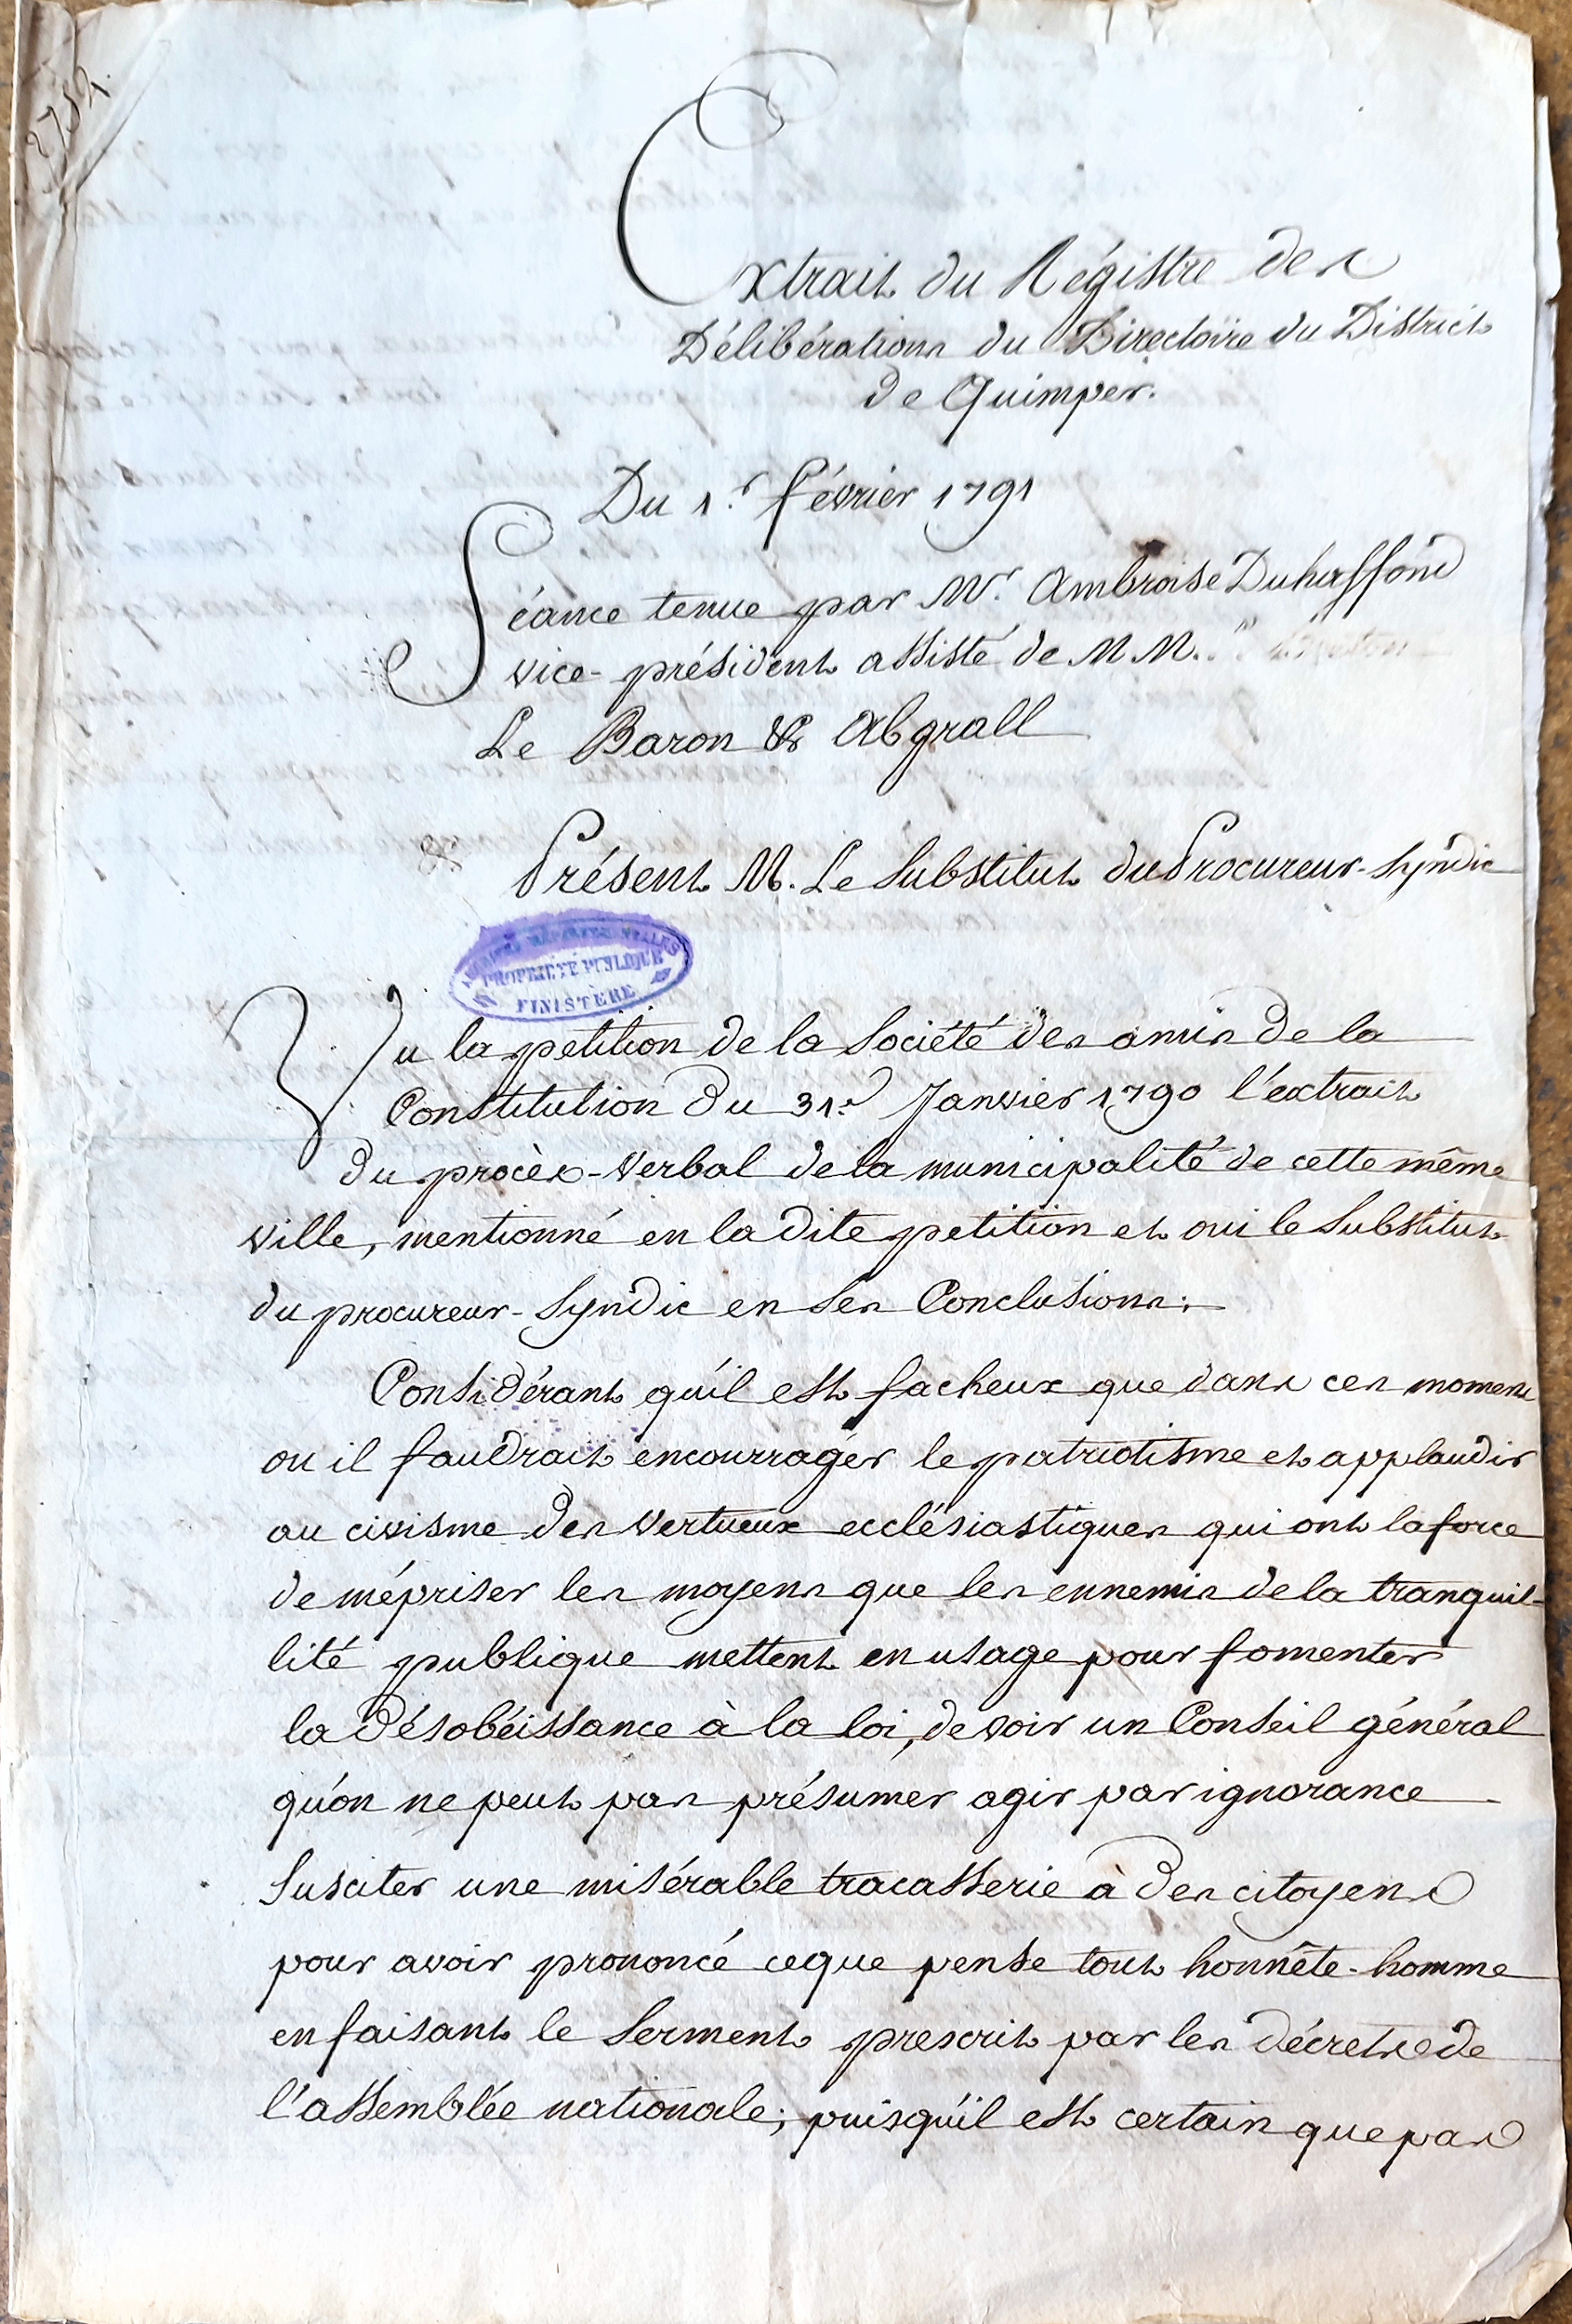 275 2.
Extrait du Régistre des
Délibérations du Directoire du District
de Quimper.
Du 1.r février 1791
Séance tenue par Mr. Ambroise Duhaffond
vice-président assisté de MM.rs
Le Baron & Abgrall
& Présent M. Le Substitut du Procureur-Syndic
ARCHIVES DÉPARTEMENTALES
PROPRIÉTÉ PUBLIQUE
FINISTÈRE
Vu la petition de la Société des amis de la
Constitution du 31.e Janvier 1790 l'extrait
du procès-verbal de la municipalité de cette même
ville, mentionné en la dite petition et oui le Substitut
du procureur-Syndic en ses Conclusions:
Considérant qu'il est facheux que dans ces momens
ou il faudrait encourrager le patriotisme et applaudir
au civisme des vertueux ecclésiastiques qui ont la force
de mépriser les moyens que les ennemis de la tranquil-
lité publique mettent en usage pour fomenter
la désobéissance à la loi, de voir un Conseil général
qu'on ne peut pas présumer agir par ignorance
Susciter une misérable tracasserie à des citoyens
pour avoir prononcé ce que pense tout honnête-homme
en faisant le Serment prescrit par les décrets de
l'assemblée nationale; puisqu'il est certain que par